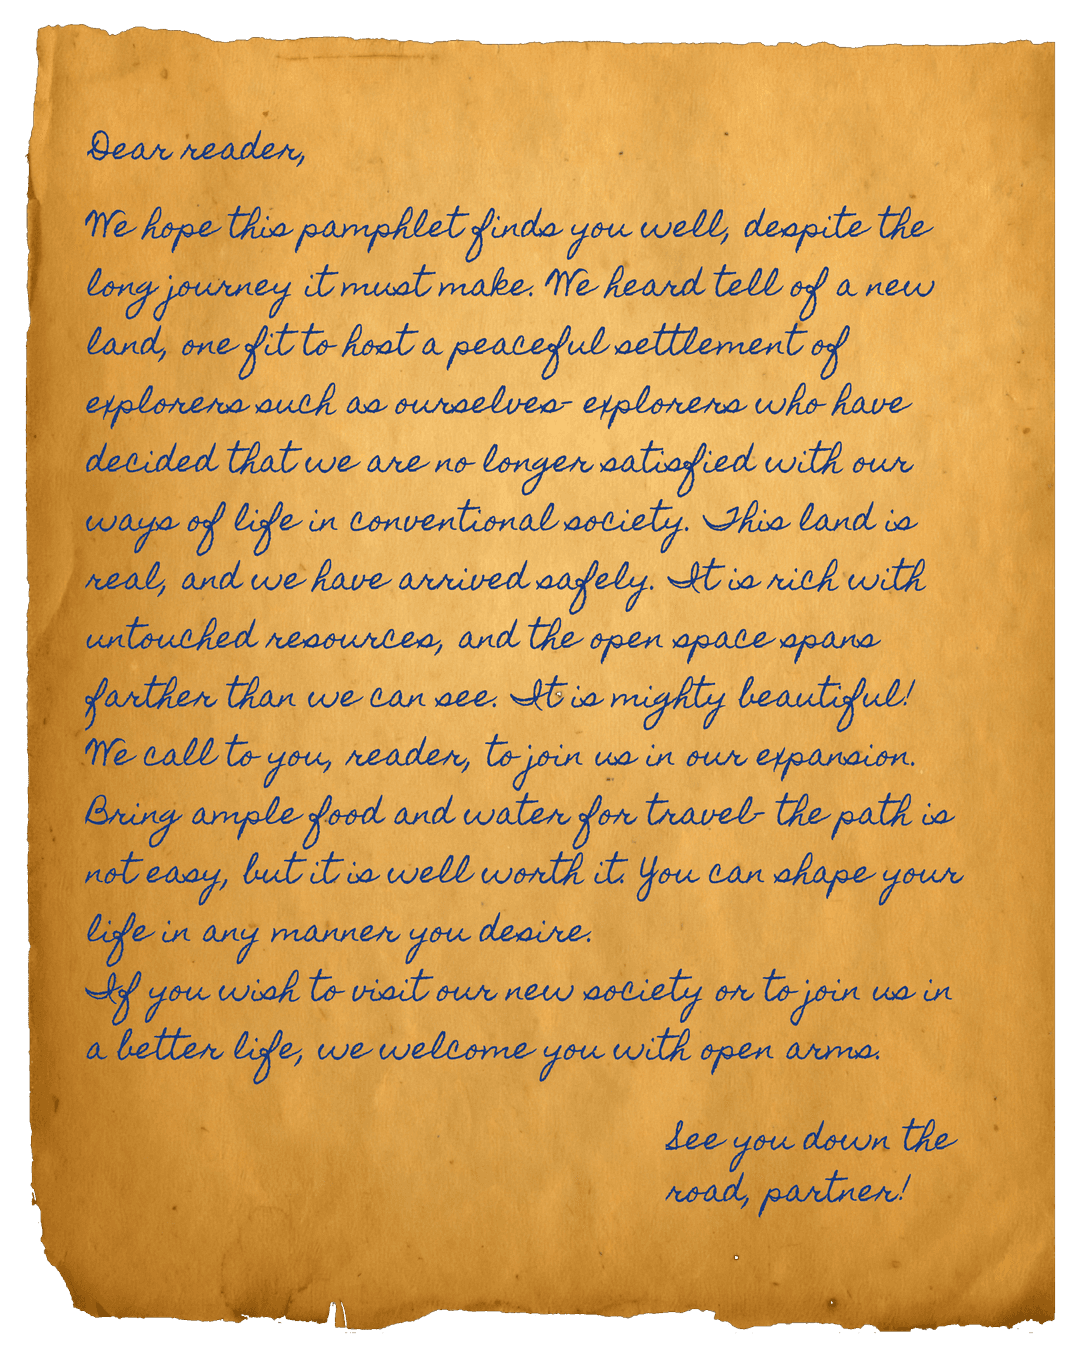 Dear reader,
We hope this pamphlet finds you well, despite the
long journey it must make. We heard tell of a new
land, one fit to host a peaceful settlement of
explorers such as ourselves- explorers who have
decided that we are no longer satisfied with our
ways of life in conventional society. This land is
real, and we have arrived safely. It is rich with
untouched resources, and the open space spans
farther than we can see. It is mighty beautiful!
We call to you, reader, to join us in our expansion.
Bring ample food and water for travel- the path is
not easy, but it is well worth it. You can shape your
life in any manner you desire.
If you wish to visit our new society or to join us in
a better life, we welcome you with open arms.
See you down the
road, partner!